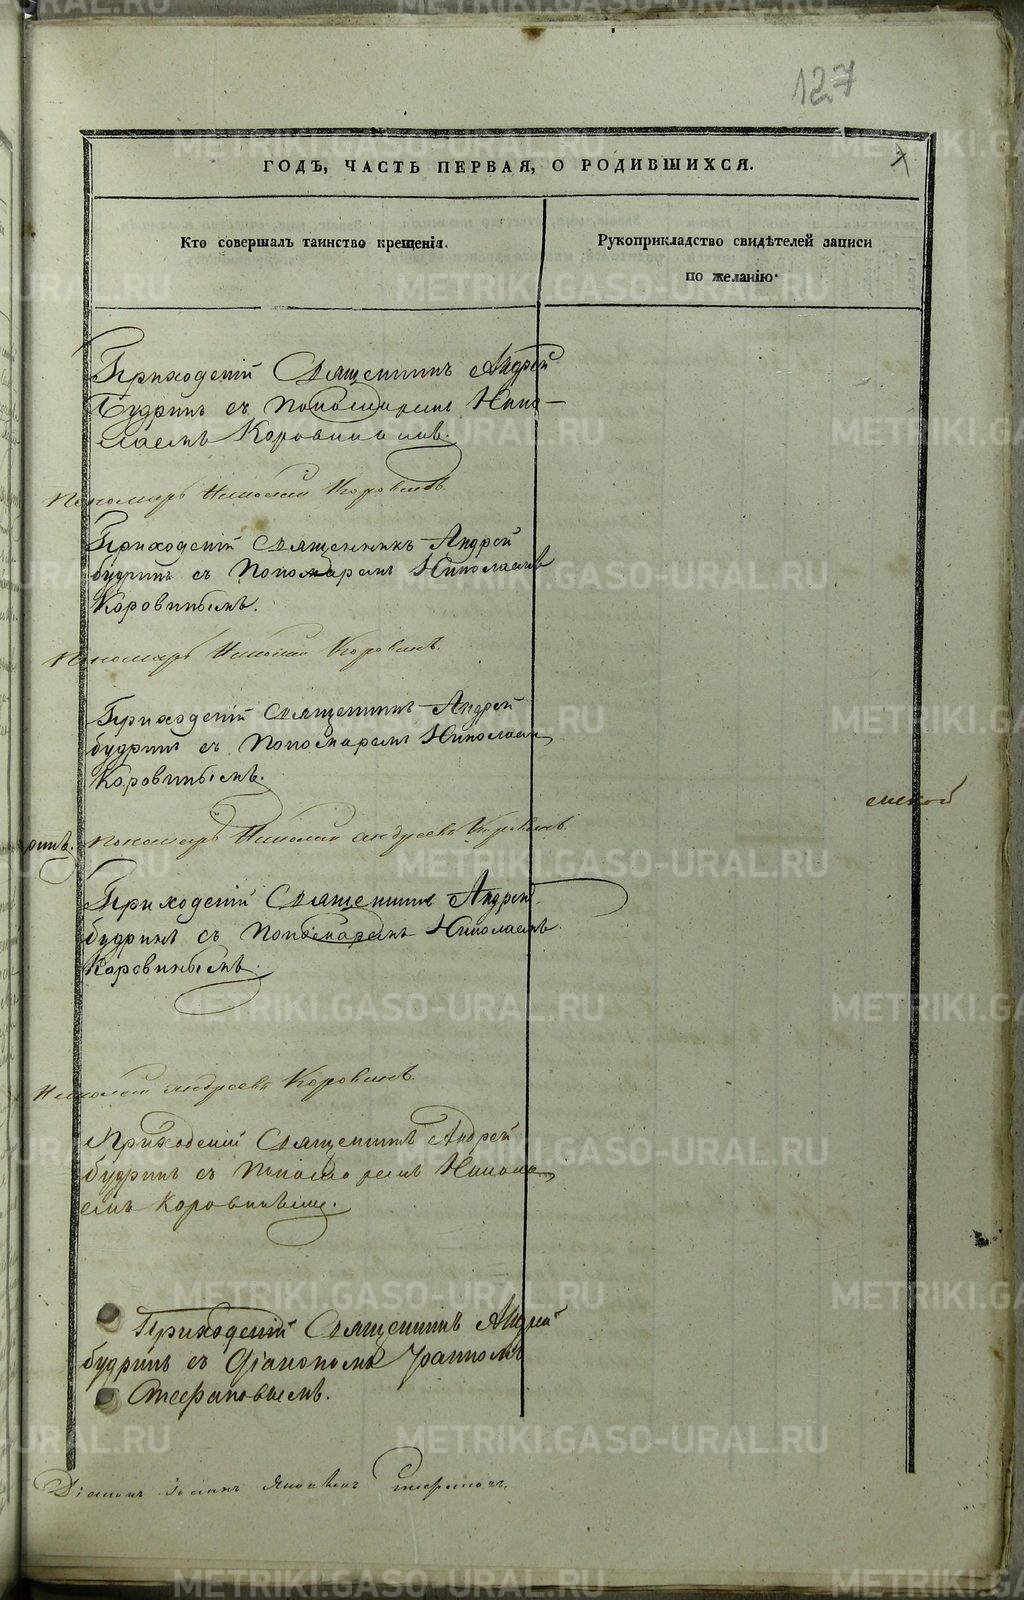 127
ГОДЪ, ЧАСТЬ ПЕРВАЯ, О РОДИВШИХСЯ.
Кто совершалъ таинство крещенія.
Рукоприкладство свидѣтелей записи
по желанію.
Приходскій Священникъ Андрей
Будринъ съ Пономаремъ Нико-
лаемъ Коровинымъ.
Пономарь Николай Коровинъ
Приходскій Священникъ Андрей
будринъ съ Пономаремъ Николаемъ
Коровинымъ.
Пономарь Николай Коровинъ.
Приходскій Священникъ Андрей
будринъ съ Пономаремъ Николаем
Коровинымъ.
емской
ринъ. пономарь Николай андреевъ Коровинъ.
Приходскій Священникъ Андрей
будринъ съ Пономаремъ Николаемъ
Коровинымъ.
Николай андреевъ Коровинъ.
Приходскій Священникъ Андрей
будринъ съ Пономаремъ Никола
емъ Коровинымъ.
Приходскій Священникъ Андрей
будринъ съ Діакономъ Іоанномъ
Стефановымъ.
Діаконъ Іоаннъ Стефановъ.
METRIKI.GASO-URAL.RU